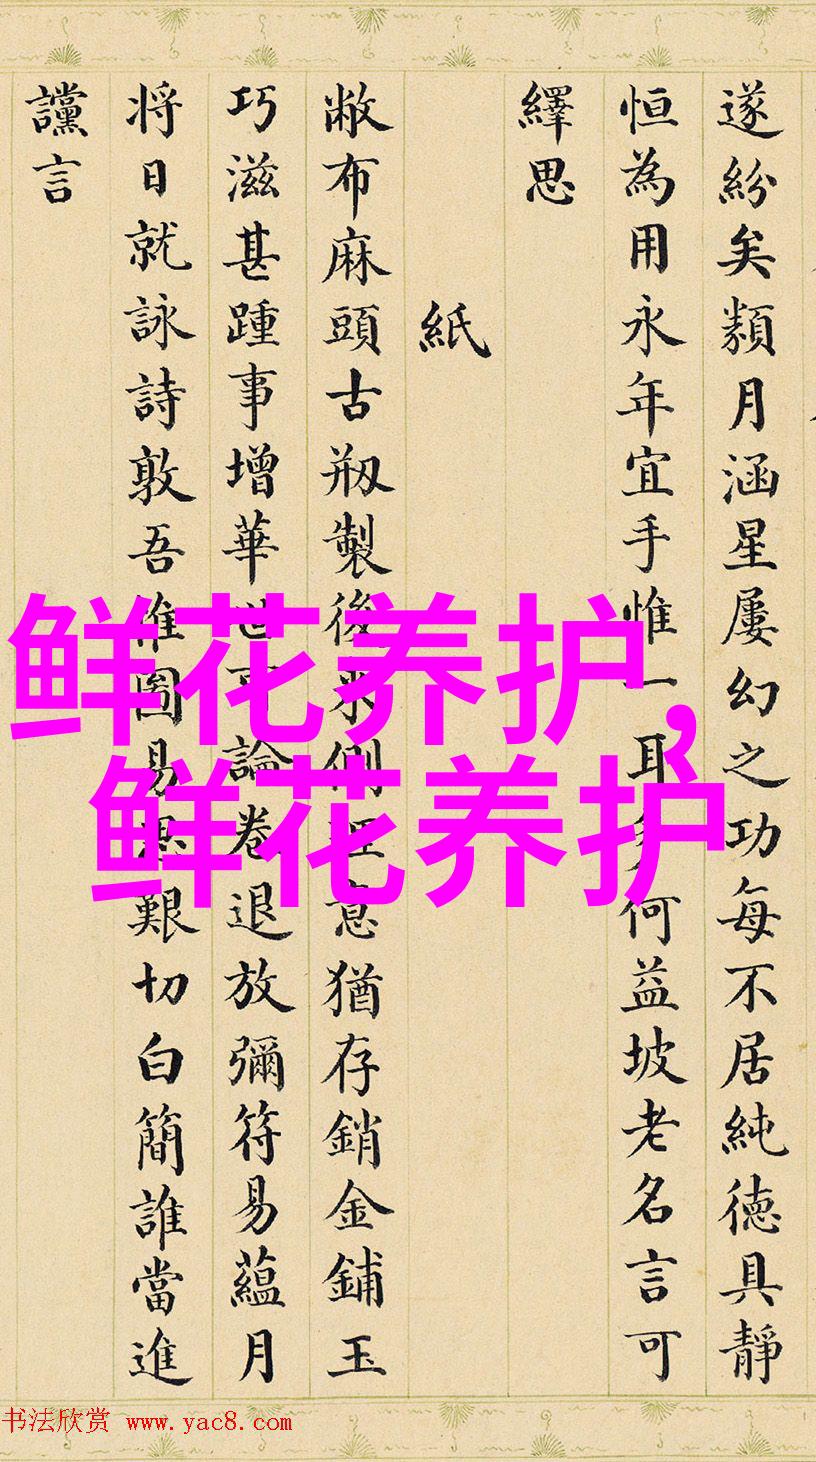 遂紛矣類月涵星屢幻之功每不居純德具靜
恒為用永年宜手惟一耳多何益坡老名言可
繹思
紙
敝布麻頭古剏製後來側理意猶存銷金鋪玉
巧滋甚踵事增華世可論卷退放彌符易蘊月
将日就詠詩敦吾惟圖易思艱切白簡誰當進
讜言
鲜花养护,
鲜花养护
书法欣赏 www.yac8.com